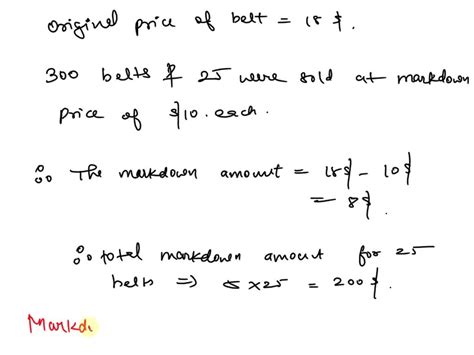 Original price of belt = 18 $.
300 belts & 25 were sold at markdown
price of $10. each.
∴ The markdown amount = 18$ - 10$
= 8$.
∴ total markdown amount for 25
belts ⇒ 8 x 25 = 200$.
Markd